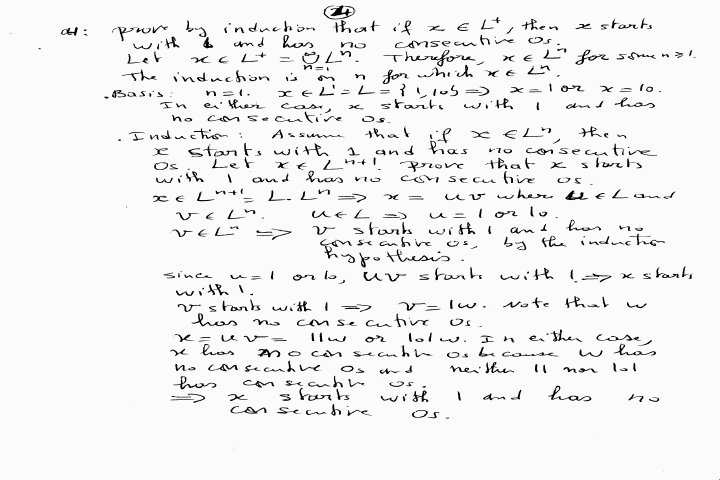 2
Q1: prove by induction that if x ∈ L⁺, then x starts
with 1 and has no consecutive 0s.
Let x ∈ L⁺ = ∞⋃n=1 Lⁿ. Therefore, x ∈ Lⁿ for some n≥1.
The induction is on n for which x ∈ Lⁿ.
. Basis: n=1. x ∈ L¹ = L = {1,10} ⇒ x=1 or x=10.
In either case, x starts with 1 and has
no consecutive 0s.
. Induction: Assume that if x ∈ Lⁿ, then
x starts with 1 and has no consecutive
0s. Let x ∈ Lⁿ⁺¹. prove that x starts
with 1 and has no consecutive 0s.
x ∈ Lⁿ⁺¹ = L.Lⁿ ⇒ x = uv where u ∈ L and
v ∈ Lⁿ. u ∈ L ⇒ u=1 or 10.
v ∈ Lⁿ ⇒ v starts with 1 and has no
consecutive 0s, by the induction
hypothesis.
since u=1 or 10, uv starts with 1. ⇒ x starts
with 1.
v starts with 1 ⇒ v=1w. Note that w
has no consecutive 0s.
x = uv = 11w or 101w. In either case,
x has no consecutive 0s because w has
no consecutive 0s and neither 11 nor 101
has consecutive 0s.
⇒ x starts with 1 and has no
consecutive 0s.